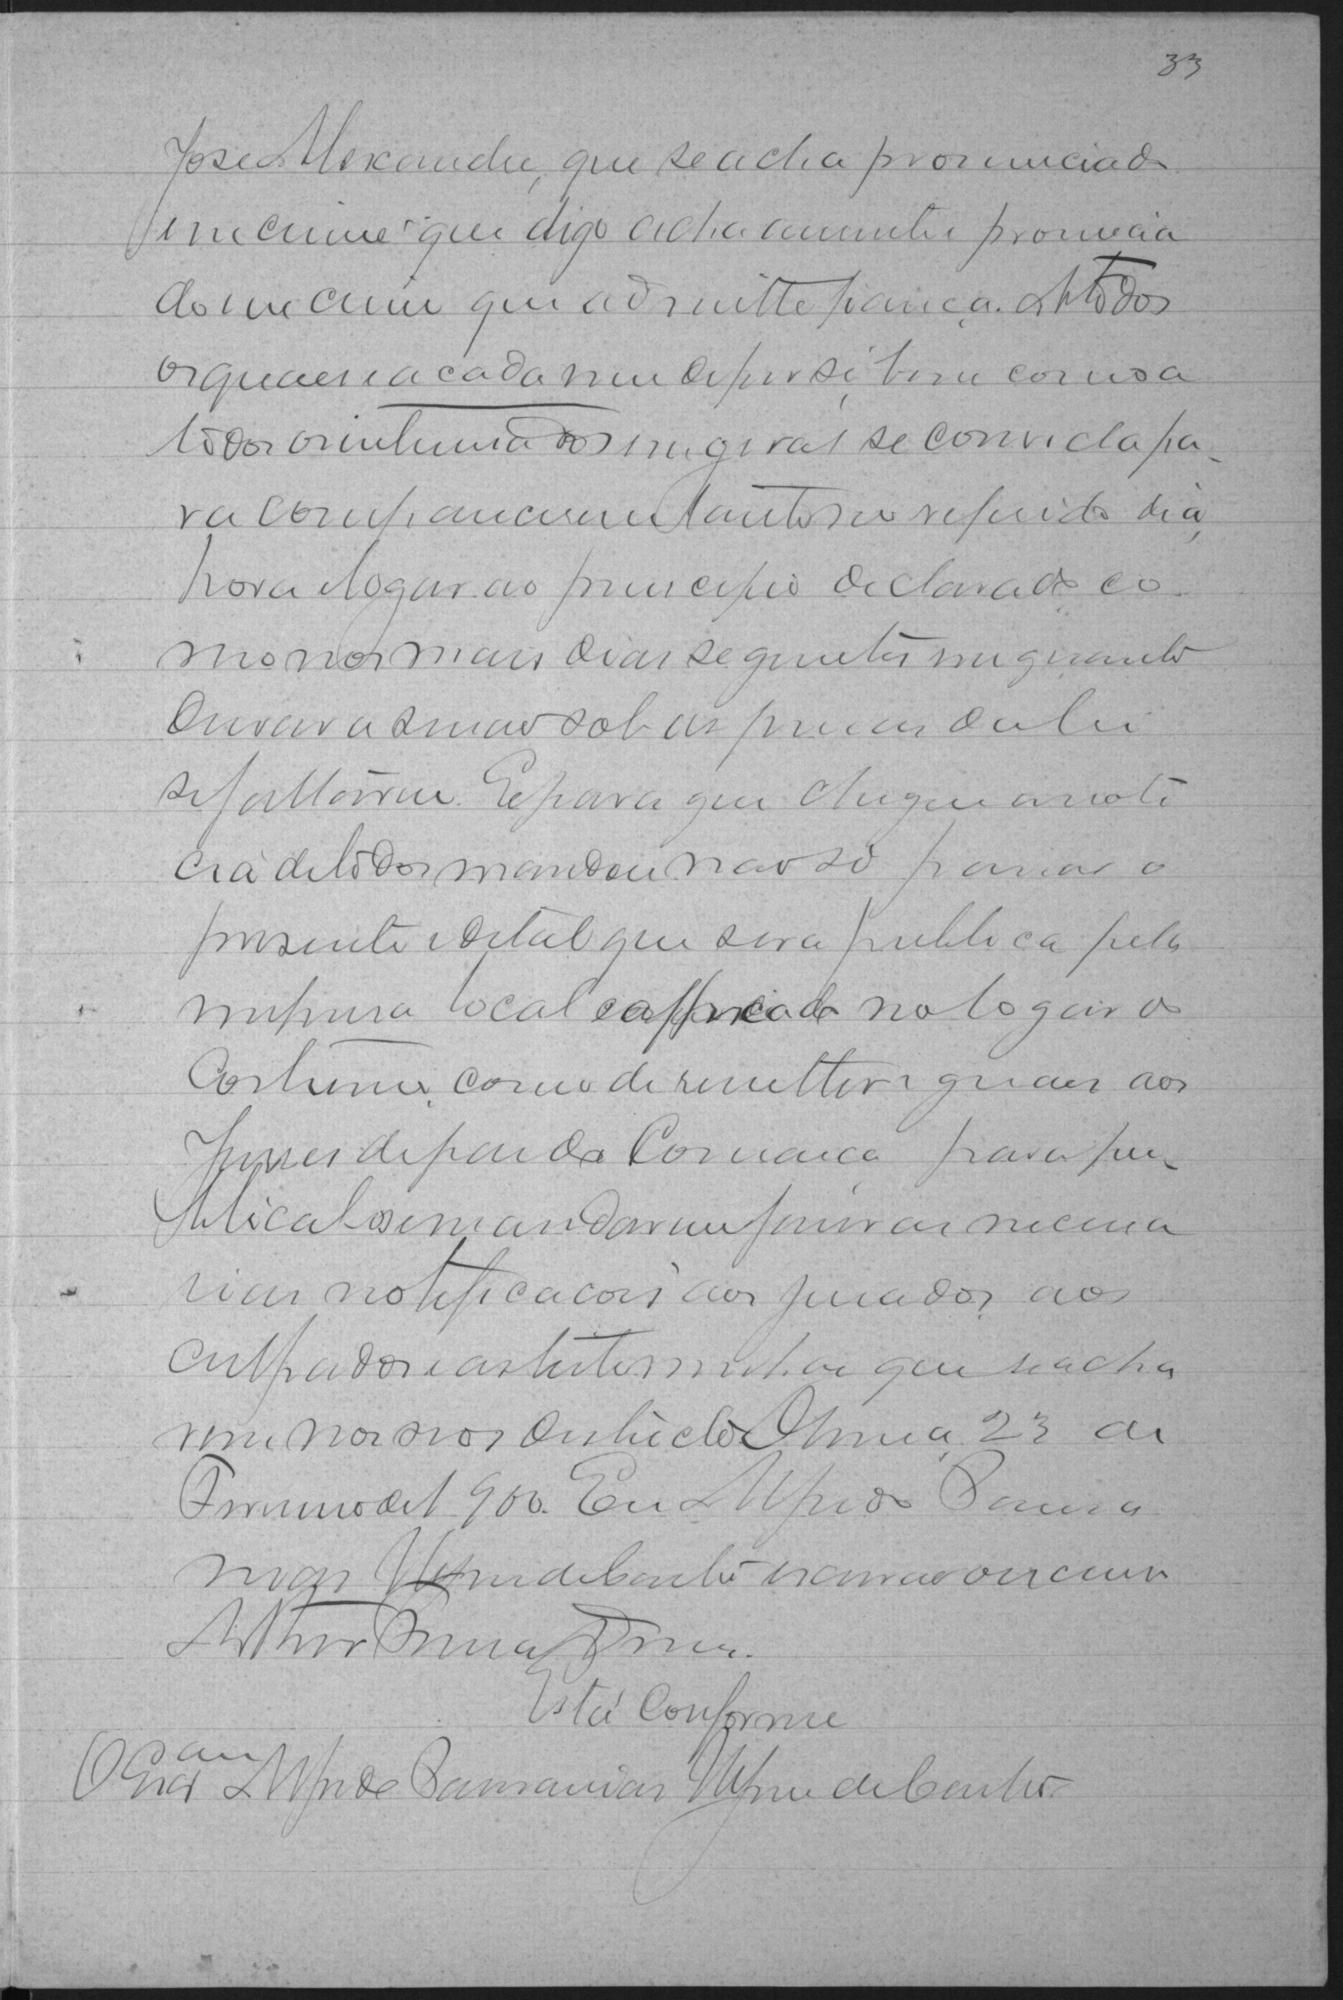 33
José Alexandre, que se acha pronunciado
em crime que digo acha amente pronuncia
do em crime que admitte fiança. A todos
os quaes e a cada um de per si, bem como a
todos os intimados em geral se convida pa-
ra comparecerem tanto no referido dia,
hora e logar ao principio declarado, co-
mo nos mais dias seguintes em quanto
durar a sessão sob as penas da lei
se faltarem. E para que chegue a noti
cia de todos mandou não só passar o
presente edital que será publica pela
imprensa local e affixado no logar do
Costume, como de remetter iguaes aos
Juizes de paz da Comarca para pu-
blical-os e mandarem fazer as necessa
rias notificacoes aos jurados, aos
culpados e as testemunhas que se acha
rem nos seos districtos 23 de
de 1900. Eu Alfredo Pausa
nias de Castro escrivão o escrevi
Arthur
Está Conforme
O Escr.am Alfredo Pausanias de Castro